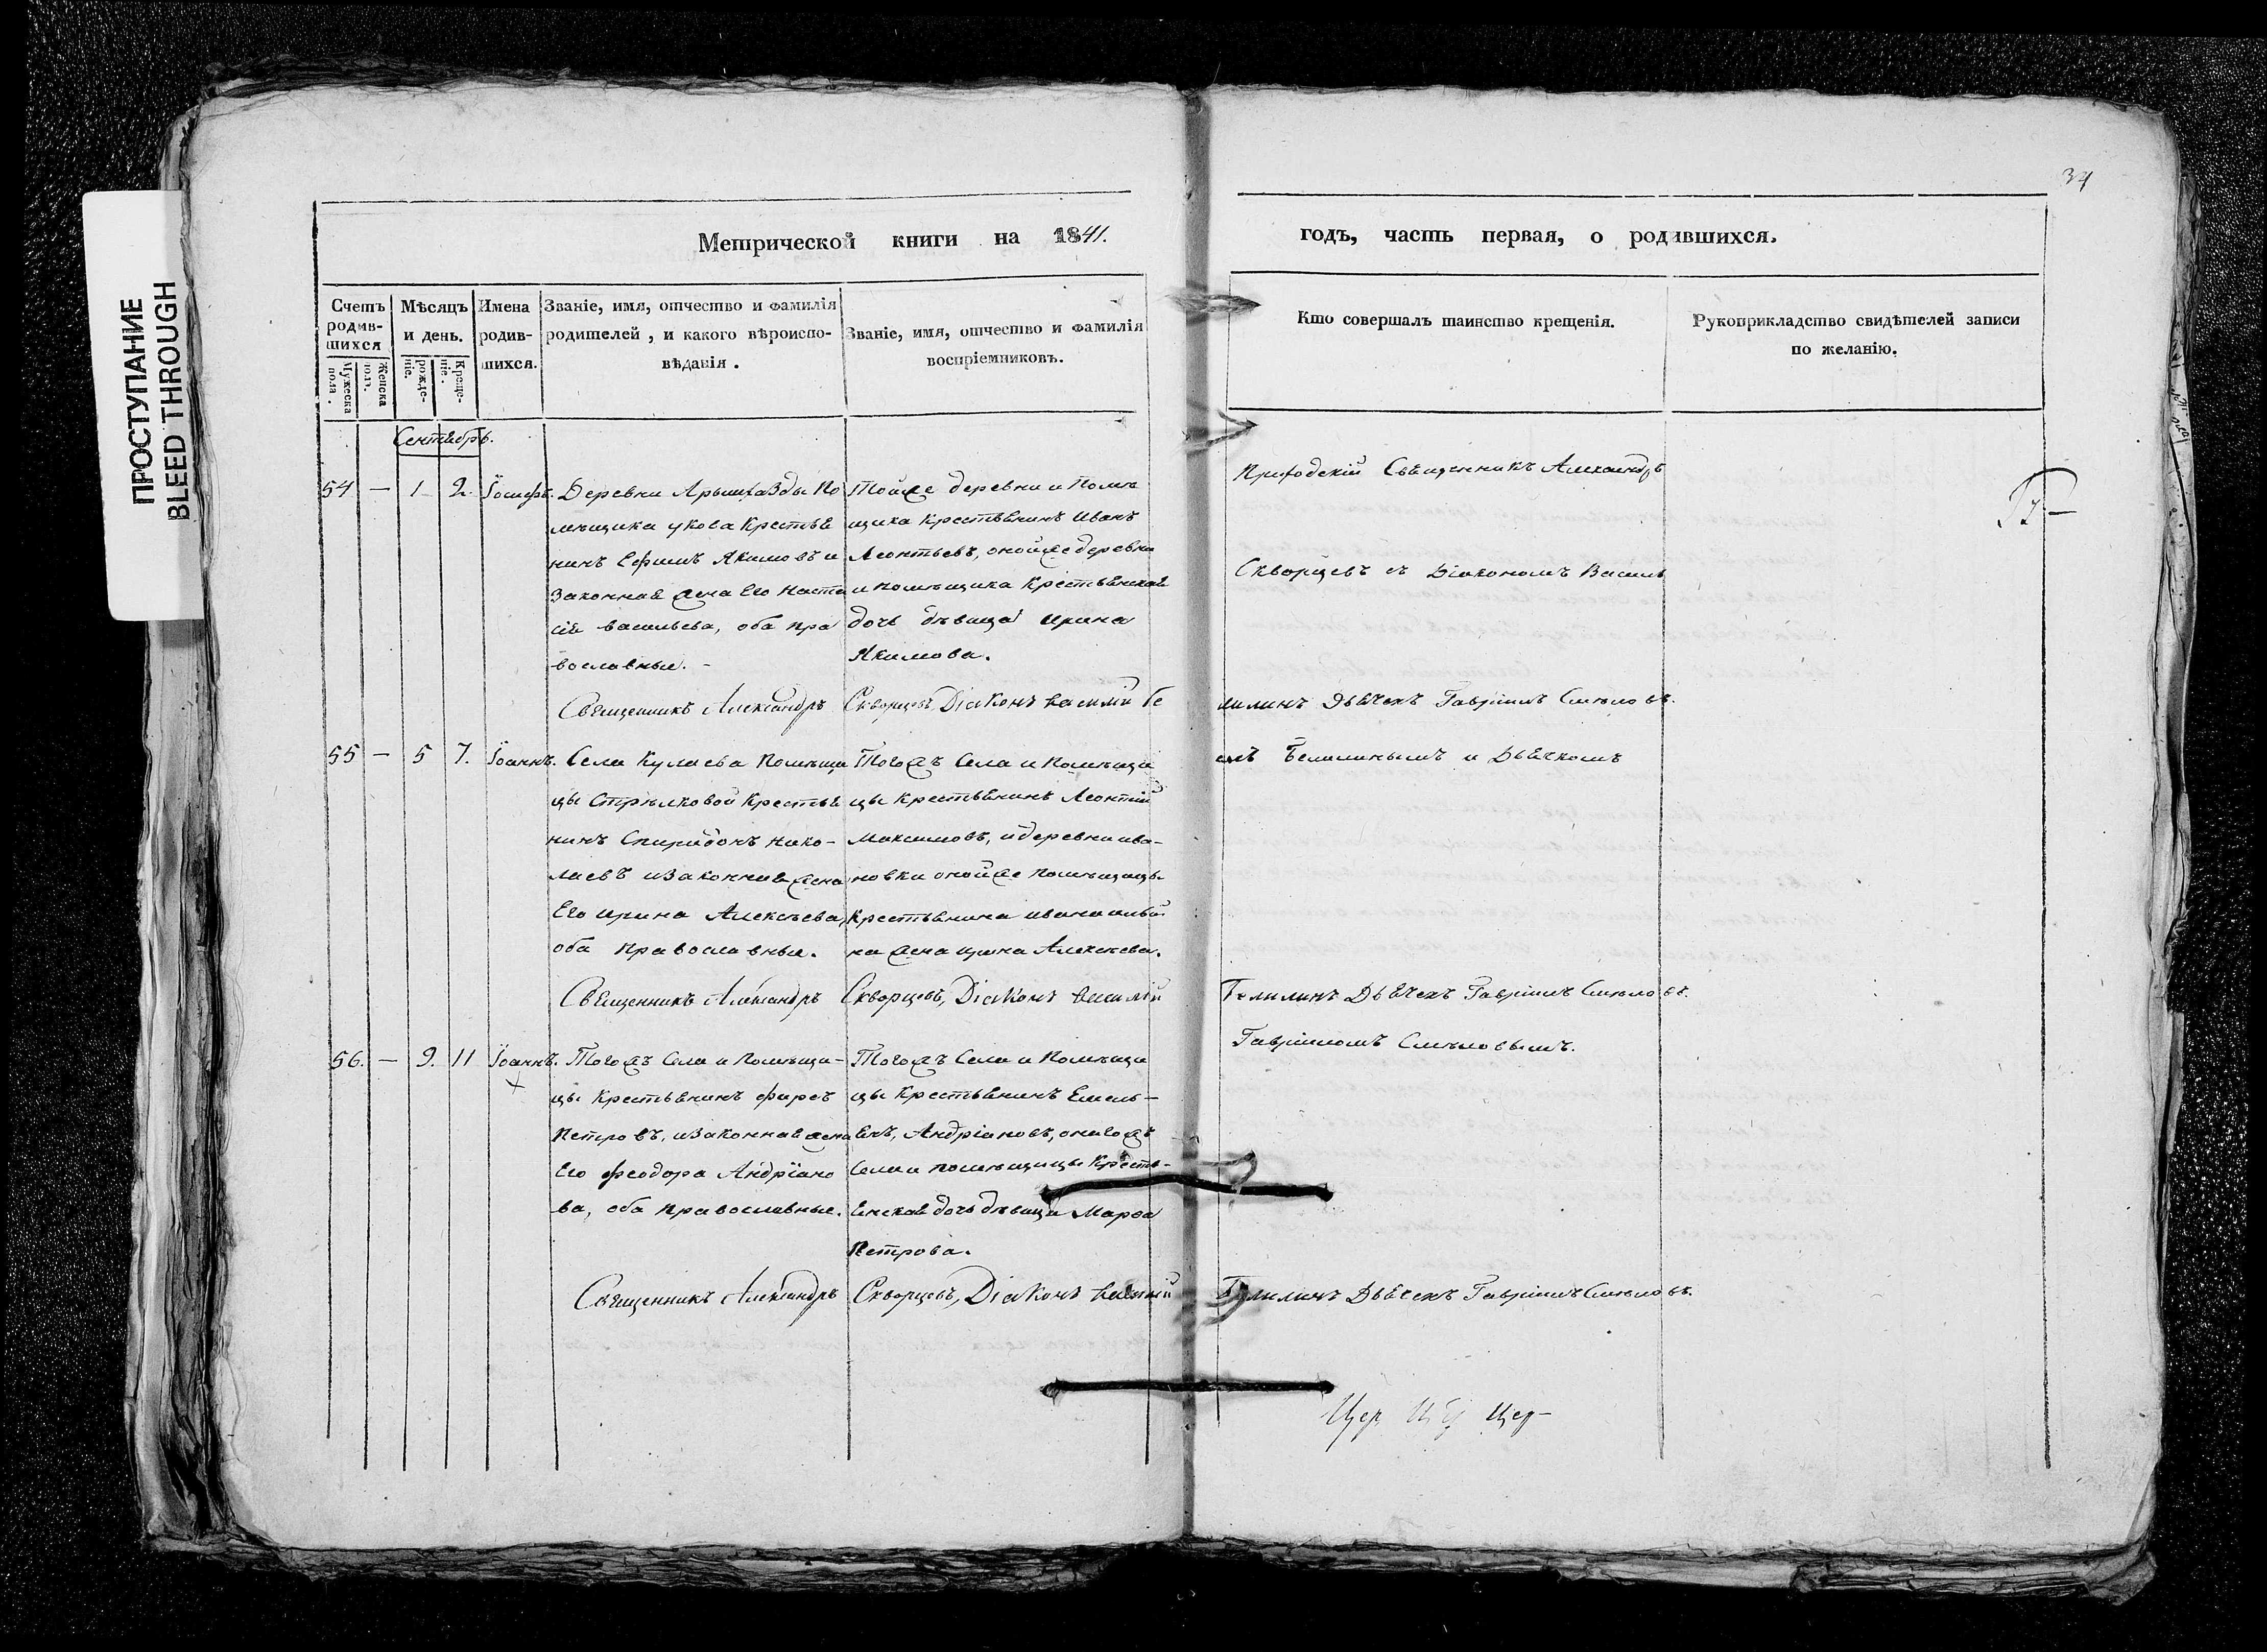 ПРОСТУПАНИЕ
BLEED THROUGH
34
Метрической книги на 1841.
годъ, часть первая, о родившихся.
Счетъ родив-шихся
Мужеска пола.
Женска пола.
Мѣсяцъ и день.
рожде-ніе.
Креще-ніе.
Имена родив-шихся.
Званіе, имя, отчество и фамилія
родителей, и какого вѣроиспо-
вѣданія.
Званіе, имя, отчество и фамилія
воспріемниковъ.
Кто совершалъ таинство крещенія.
Рукоприкладство свидѣтелей записи
по желанію.
Сентябрь.
54 — 1 2. Іосифъ.
Деревни По
мѣщика Крестья
нинъ Ефимъ Якимовъ и
законная жена Его Наста
сія васильева, оба пра
вославные.
Тойже деревни и Помѣ
щика Крестьянинъ Иванъ
Леонтьевъ, онойже деревни
и помѣщика Крестьянская
дочь дѣвица Ирина
Якимова.
Приходскій Священникъ Александръ
Скворцевъ съ Діакономъ Васил
Священникъ Александръ Скворцевъ Діаконъ василій Ге
лилинъ Дьячекъ Гавріилъ Смѣловъ.
55 — 5 7. Іоаннъ.
Села Кулаева Помѣщи
цы Стрѣлковой Крестья
нинъ Спиридонъ Нико-
лаевъ и законная жена
Его Ирина Алексѣева,
оба православные.
Тогожъ Села и Помѣщи
цы Крестьянинъ Леонтій
Максимовъ, и деревни ива-
новки онойже помѣщицы
Крестьянина ивана
на жена Ирина Алексѣева.
и Дьячкомъ
Священникъ Александръ Скворцевъ, Діаконъ василій
Гелилинъ Дьячекъ Гавріилъ Смѣловъ.
Гавріиломъ Смѣловымъ.
56. — 9. 11 Іоаннъ.
Тогожъ Села и Помѣщи-
цы Крестьянинъ Фирсъ
Петровъ, и законная жена
Его Феодора Андріано
ва, оба православные.
Тогожъ Села и Помѣщи
цы Крестьянинъ Емель-
янъ, Андріановъ, оногожъ
Села и помѣщицы Кресть-
янская дочь дѣвица Марѳа
Петрова.
Священникъ Александръ Скворцевъ, Діаконъ василій
Гелилинъ Дьячекъ Гавріилъ Смѣловъ.